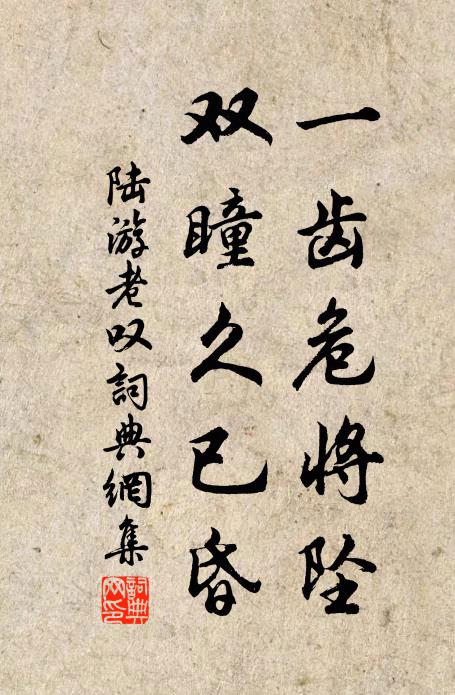 一齿危将坠
双瞳久已昏
陆游老叹詞典網集
詞典
网印